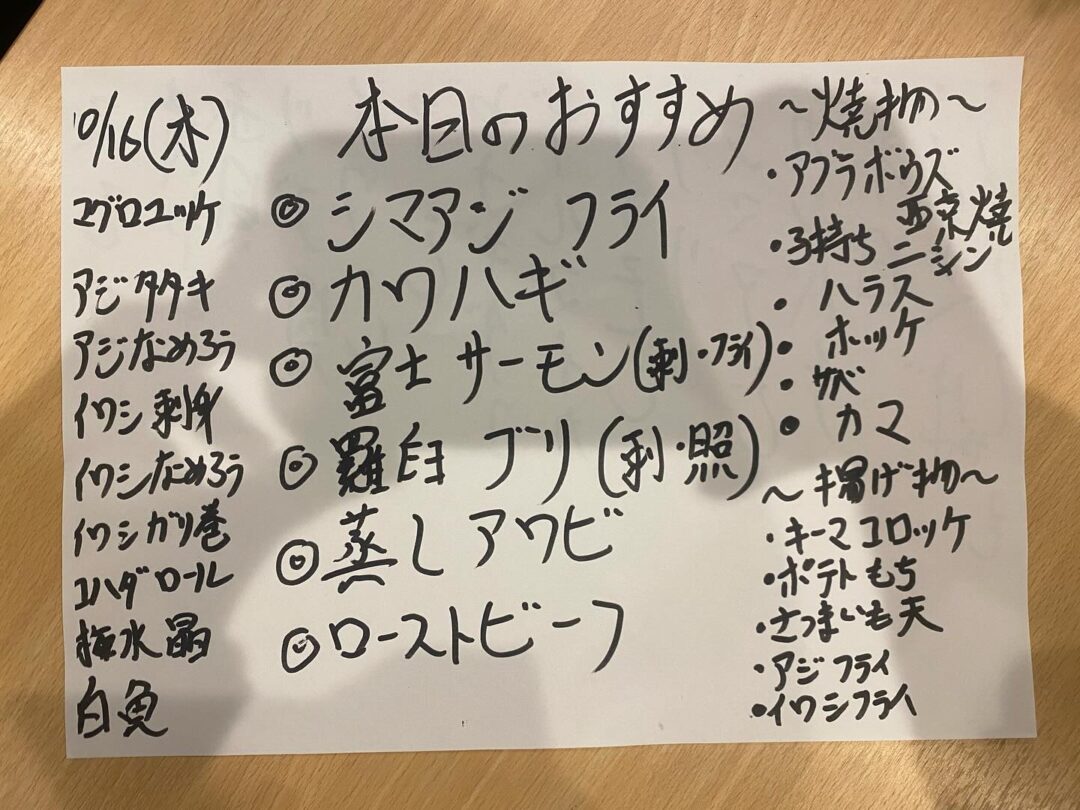 10/16(木)
マグロユッケ
アジタタキ
アジなめろう
イワシ刺身
イワシなめろう
イワシガリ巻
コハダロール
梅水晶
白魚
本日のおすすめ
◎シマアジフライ
◎カワハギ
◎富士サーモン(刺・フライ)
◎羅臼ブリ(刺・照)
◎蒸しアワビ
◎ローストビーフ
～焼物～
・アブラボウズ
西京焼
・子持ちニシン
・ハラス
・ホッケ
・サバ
・カマ
～揚げ物～
・キーマコロッケ
・ポテトもち
・さつまいも天
・アジフライ
・イワシフライ